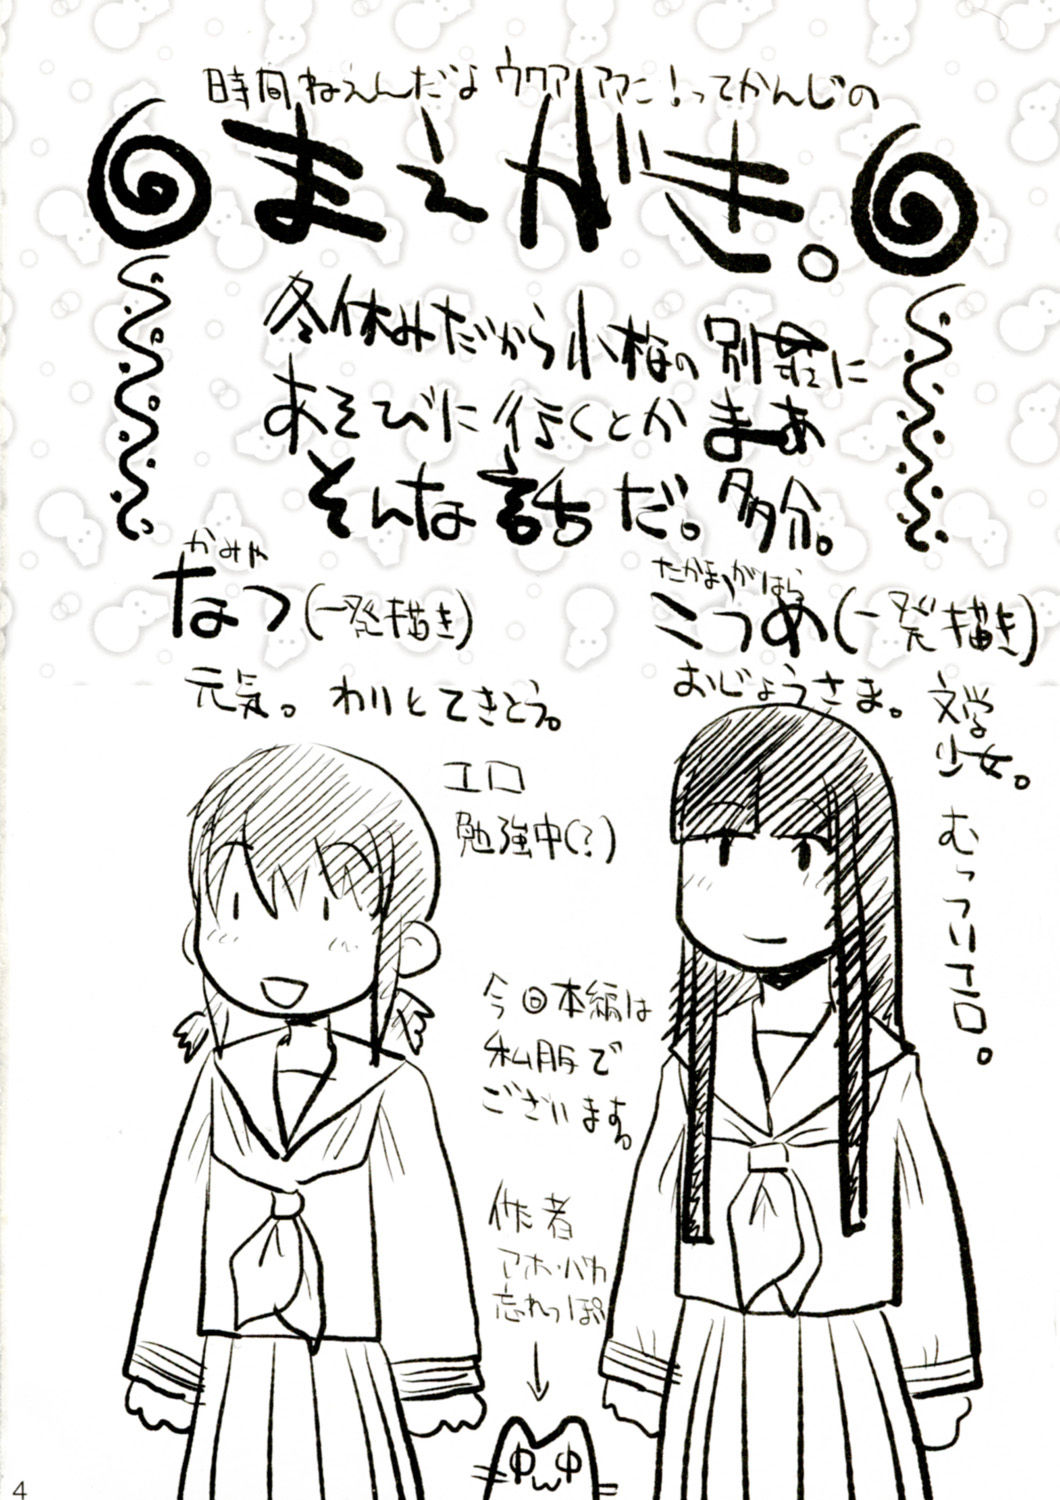 時間ねえんだよ ウワアアアン！ってかんじの
まえがき。
冬休みだから小梅の別荘に
あそびに行くとかまあ
そんな話だ。多分。
かみや
なつ(一発描き)
元気。わりとてきとう。
エロ
勉強中(?)
たかまつがはら
こうめ(一発描き)
おじょうさま。文学
少女。
むっつりエロ。
今回本編は
私服で
ございます。
作者
アホ・バカ
忘れっぽい
4